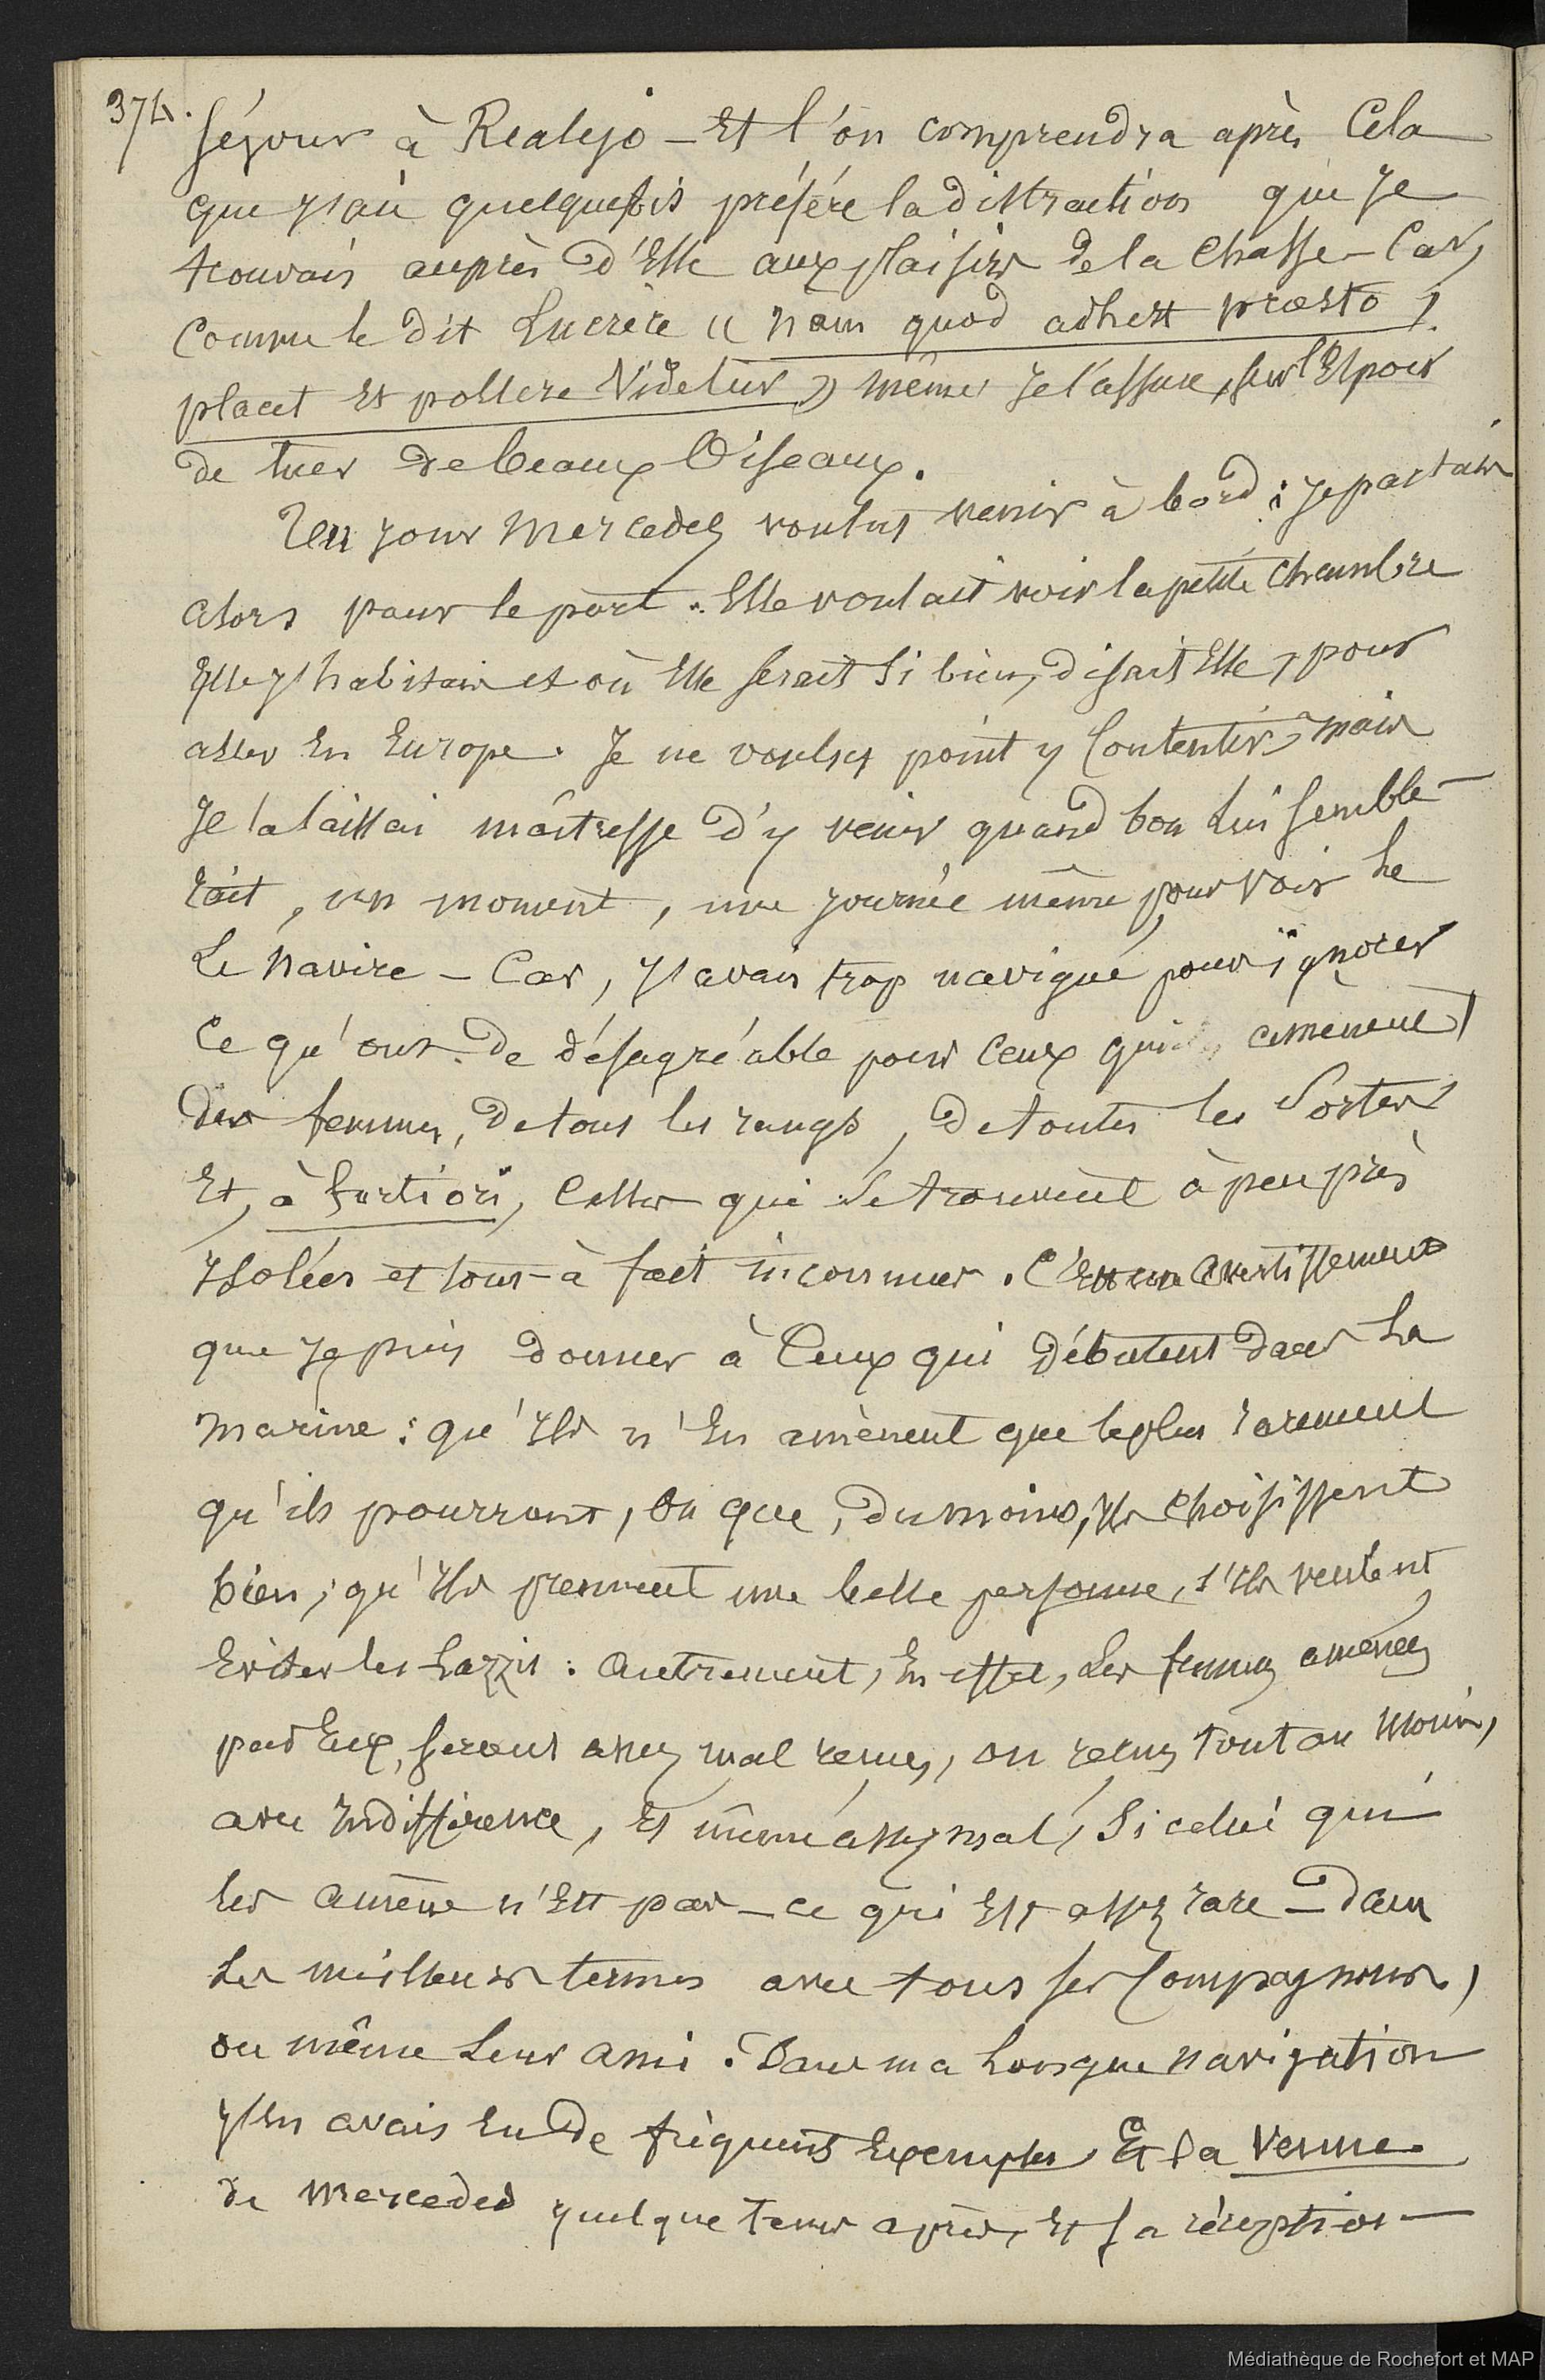 374.
séjour à Realejo – Et l'on comprendra après Cela
que j'ai quelquefois préféré la distraction que je
trouvais auprès d'Elle aux plaisirs de la Chasse – Car,
Comme le dit Lucrèce « nam quod adhest praesto,
placet Et pollere Videtur » même je l'assure, sur l'Espoir
de tuer de beaux Oiseaux.
Un jour Mercedes voulut venir à bord : je partais
alors pour le port. Elle voulait voir la petite Chambre
j'habitais et où Elle serait si bien, disait Elle, pour
aller En Europe. Je ne voulus point y Consentir, mais
Je la laissai maîtresse d'y venir quand bon Lui semble-
rait, un moment, une journée même pour voir Le
Le Navire – Car, j'avais trop navigué pour ignorer
Ce qu'ont de désagréable pour Ceux qui amènent
des femmes, de tous les rangs, de toutes les Sortes
Et, à fortiori, Celles qui se trouvent à peu près
Isolées et tout-à fait inconnues. C'Est un avertissement
que je puis donner à Ceux qui débutent dans La
marine : qu'Ils n'En amènent que le plus rarement
qu'ils pourront, Ou que, du moins, Ils Choisissent
bien ; qu'Ils prennent une belle personne, s'Ils veulent
Eviter les Lazzis : autrement, En effet, Les femmes amenées
par Eux, seront assez mal venues, ou reçues tout au moins,
avec Indifférence, Et même assez mal, Si celui qui
les amène n'Est pas – ce qui Est assez rare – dans
Les meilleurs termes avec tous ses Compagnons,
ou même Leur ami. Dans ma Longue navigation
j'En avais Eu de fréquents Exemples, Et la Venue
de Mercedes quelque tems après, Et sa réception